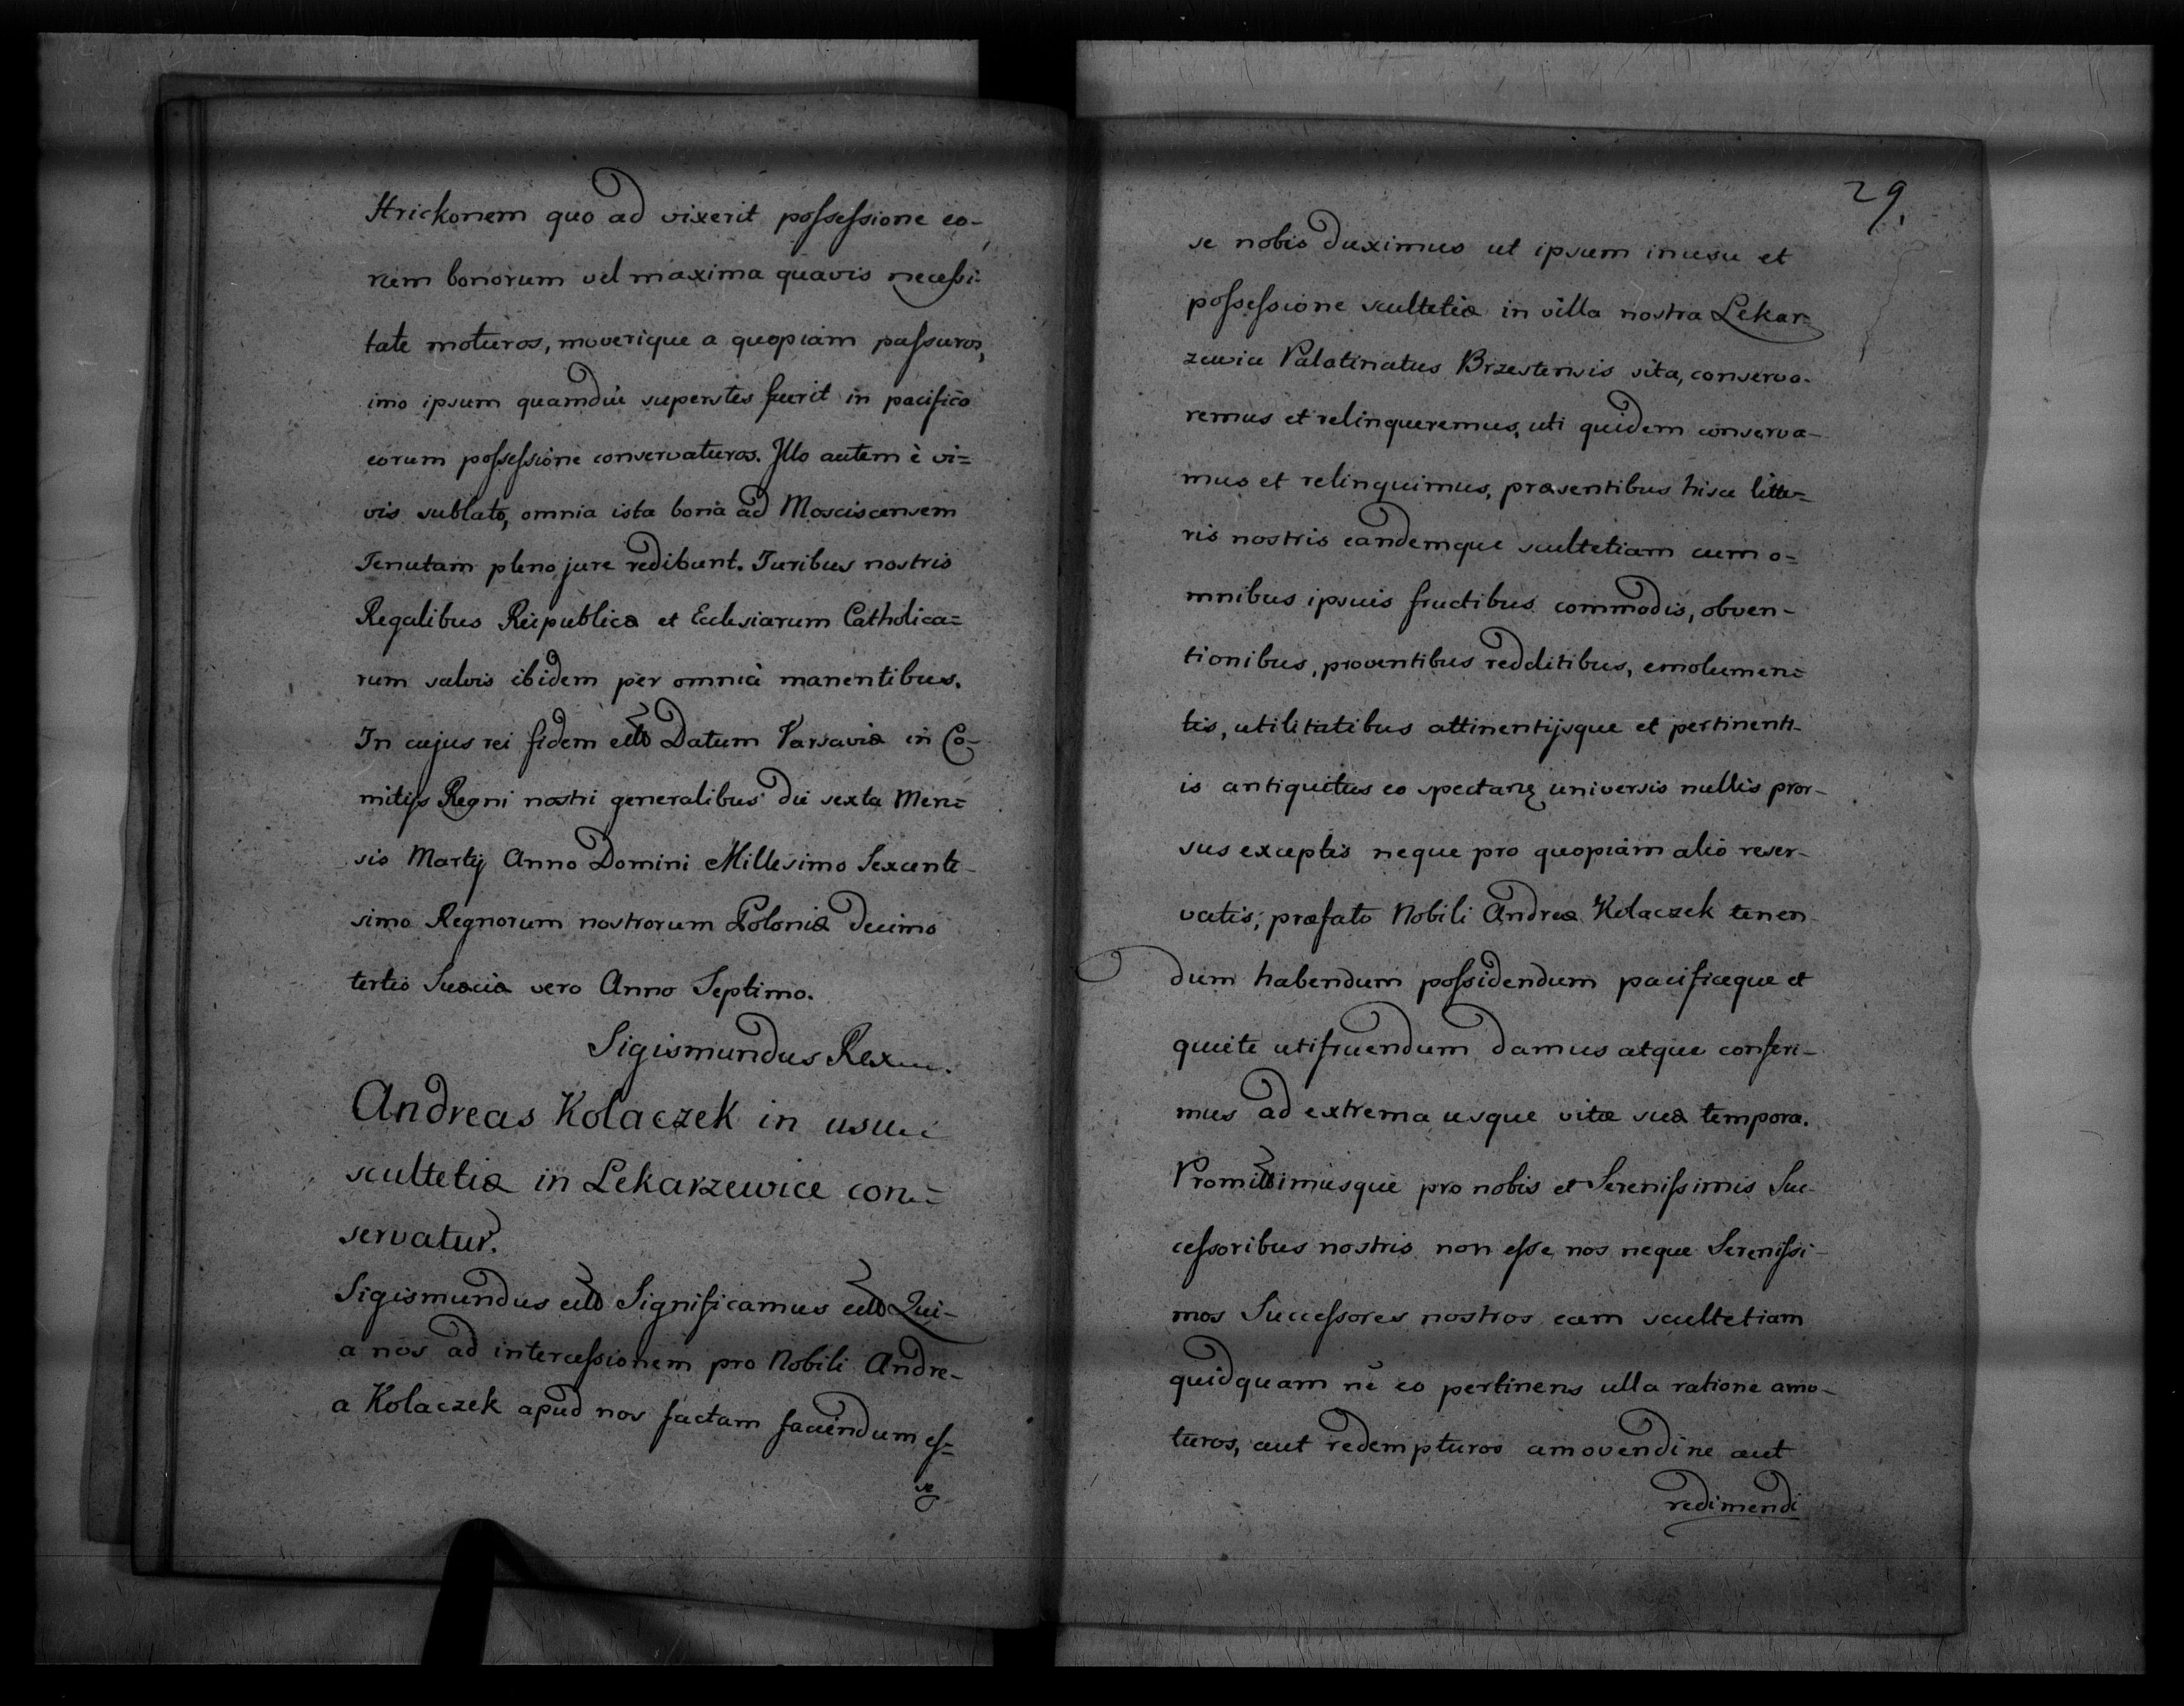 Strickonem quo ad vixerit possessione eo-
rum bonorum vel maxima quavis necessi-
tate moturos, moverique a quopiam passuros,
imo ipsum quamdiu superstes fuerit in pacifico
eorum possessione conservaturos. Illo autem è vi=
vis sublato, omnia ista bona ad Mosciscensem
Tenutam pleno jure redibunt. Juribus nostris
Regalibus Reipublicæ et Ecclesiarum Catholica=
rum salvis ibidem per omnia manentibus.
In cujus rei fidem etta Datum Varsaviæ in Co-
mitijs Regni nostri generalibus die sexta Men=
sis Martij Anno Domini Millesimo Sexcente-
simo Regnorum nostrorum Poloniæ decimo
tertio Sueciæ vero Anno Septimo.
Sigismundus Rex
Andreas Kolaczek in usu
scultetiæ in Lekarzewice con=
servatur.
Sigismundus etta Significamus etta Qui-
a nos ad intercessionem pro Nobili Andre-
a Kolaczek apud nos factam faciendum es=
se
29.
se nobis duximus ut ipsum in usu et
possessione scultetiæ in villa nostra Lekar=
zewice Palatinatus Brzestensis sita, conserva-
remus et relinqueremus, uti quidem conserva-
mus et relinquimus, præsentibus hisce litte=
ris nostris eandemque scultetiam cum o=
mnibus ipsius fructibus commodis, obven-
tionibus, proventibus redditibus, emolumen=
tis, utilitatibus attinentijsque et pertinenti-
is antiquitus eo spectanz universis nullis pror-
sus exceptis neque pro quopiam alio reser-
vatis; præfato Nobili Andreæ Kolaczek tenen
dum habendum possidendum pacificeque et
quiete utifruendum damus atque conferi-
mus ad extrema usque vitæ suæ tempora.
Promittimusque pro nobis et Serenissimis Suc-
cessoribus nostris non esse nos neque Serenissi-
mos Successores nostros eam scultetiam
quidquam nè eo pertinens ulla ratione amo-
turos, aut redempturos amovendine aut
redimendi